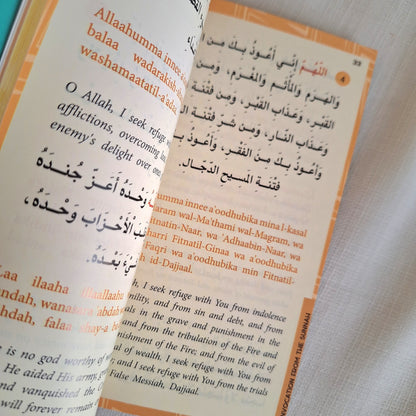 Allaahumma innee
balaa wadarakish
washamaatatil-a
O Allah, I seek refuge
afflictions, overcoming
enemy's delight over
وَحْدَهُ أَعَزَّ جُنْدَهُ
الْأَحْزَابَ وَحْدَهُ،
بَعْدَهُ.
ilaaha illallaahu
ndah, wanasara abdah
hdah, falaa shay-a b
is no god worthy of
He aided His army,
and vanquished the
will forever remain
33
4
اللَّهُمَّ إِنِّي أَعُوذُ بِكَ مِنَ
وَالْهَرَمِ وَالْمَأْثَمِ وَالْمَغْرَمِ، وَمِنْ
الْقَبْرِ، وَعَذَابِ الْقَبْرِ، وَمِنْ فِتْنَةِ
وَعَذَابِ النَّارِ، وَمِنْ شَرِّ فِتْنَةِ
وَأَعُوذُ بِكَ مِنَ الْفَقْرِ، وَأَعُوذُ
فِتْنَةِ الْمَسِيحِ الدَّجَّالِ.
umma innee a'oodhubika mina l-kasal
aram wal-Ma'thami wal-Magram, wa
itnatin-Naar, wa 'Adhaabin-Naar, wa
harri Fitnatil-Ginaa wa a'oodhubika
Faqri wa a'oodhubika min Fitnatil-
h id-Dajjaal.
I seek refuge with You from indolence
nility, and from sin and debt, and from
als in the grave and punishment in the
and from the tribulation of the Fire and
nishment of the Fire; and from the evil of
al of wealth. I seek refuge with You from
I seek refuge with You from the trials
False Messiah, Dajjaal.
OCATION FROM THE SUNNAH